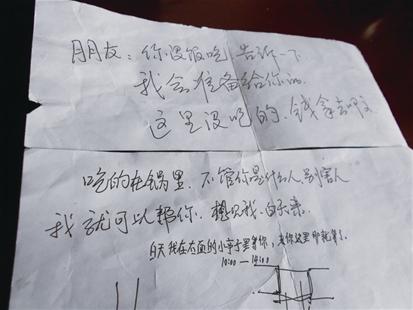 朋友：你没饭吃，告诉一下
我会准备给你的.
这里没吃的.钱拿去用
吃的在锅里.不管你是什么人,别害人
我就可以帮你.想见我.白天来.
白天我在右面的小亭子里等你,来你这里即就了.
10:00—14:00